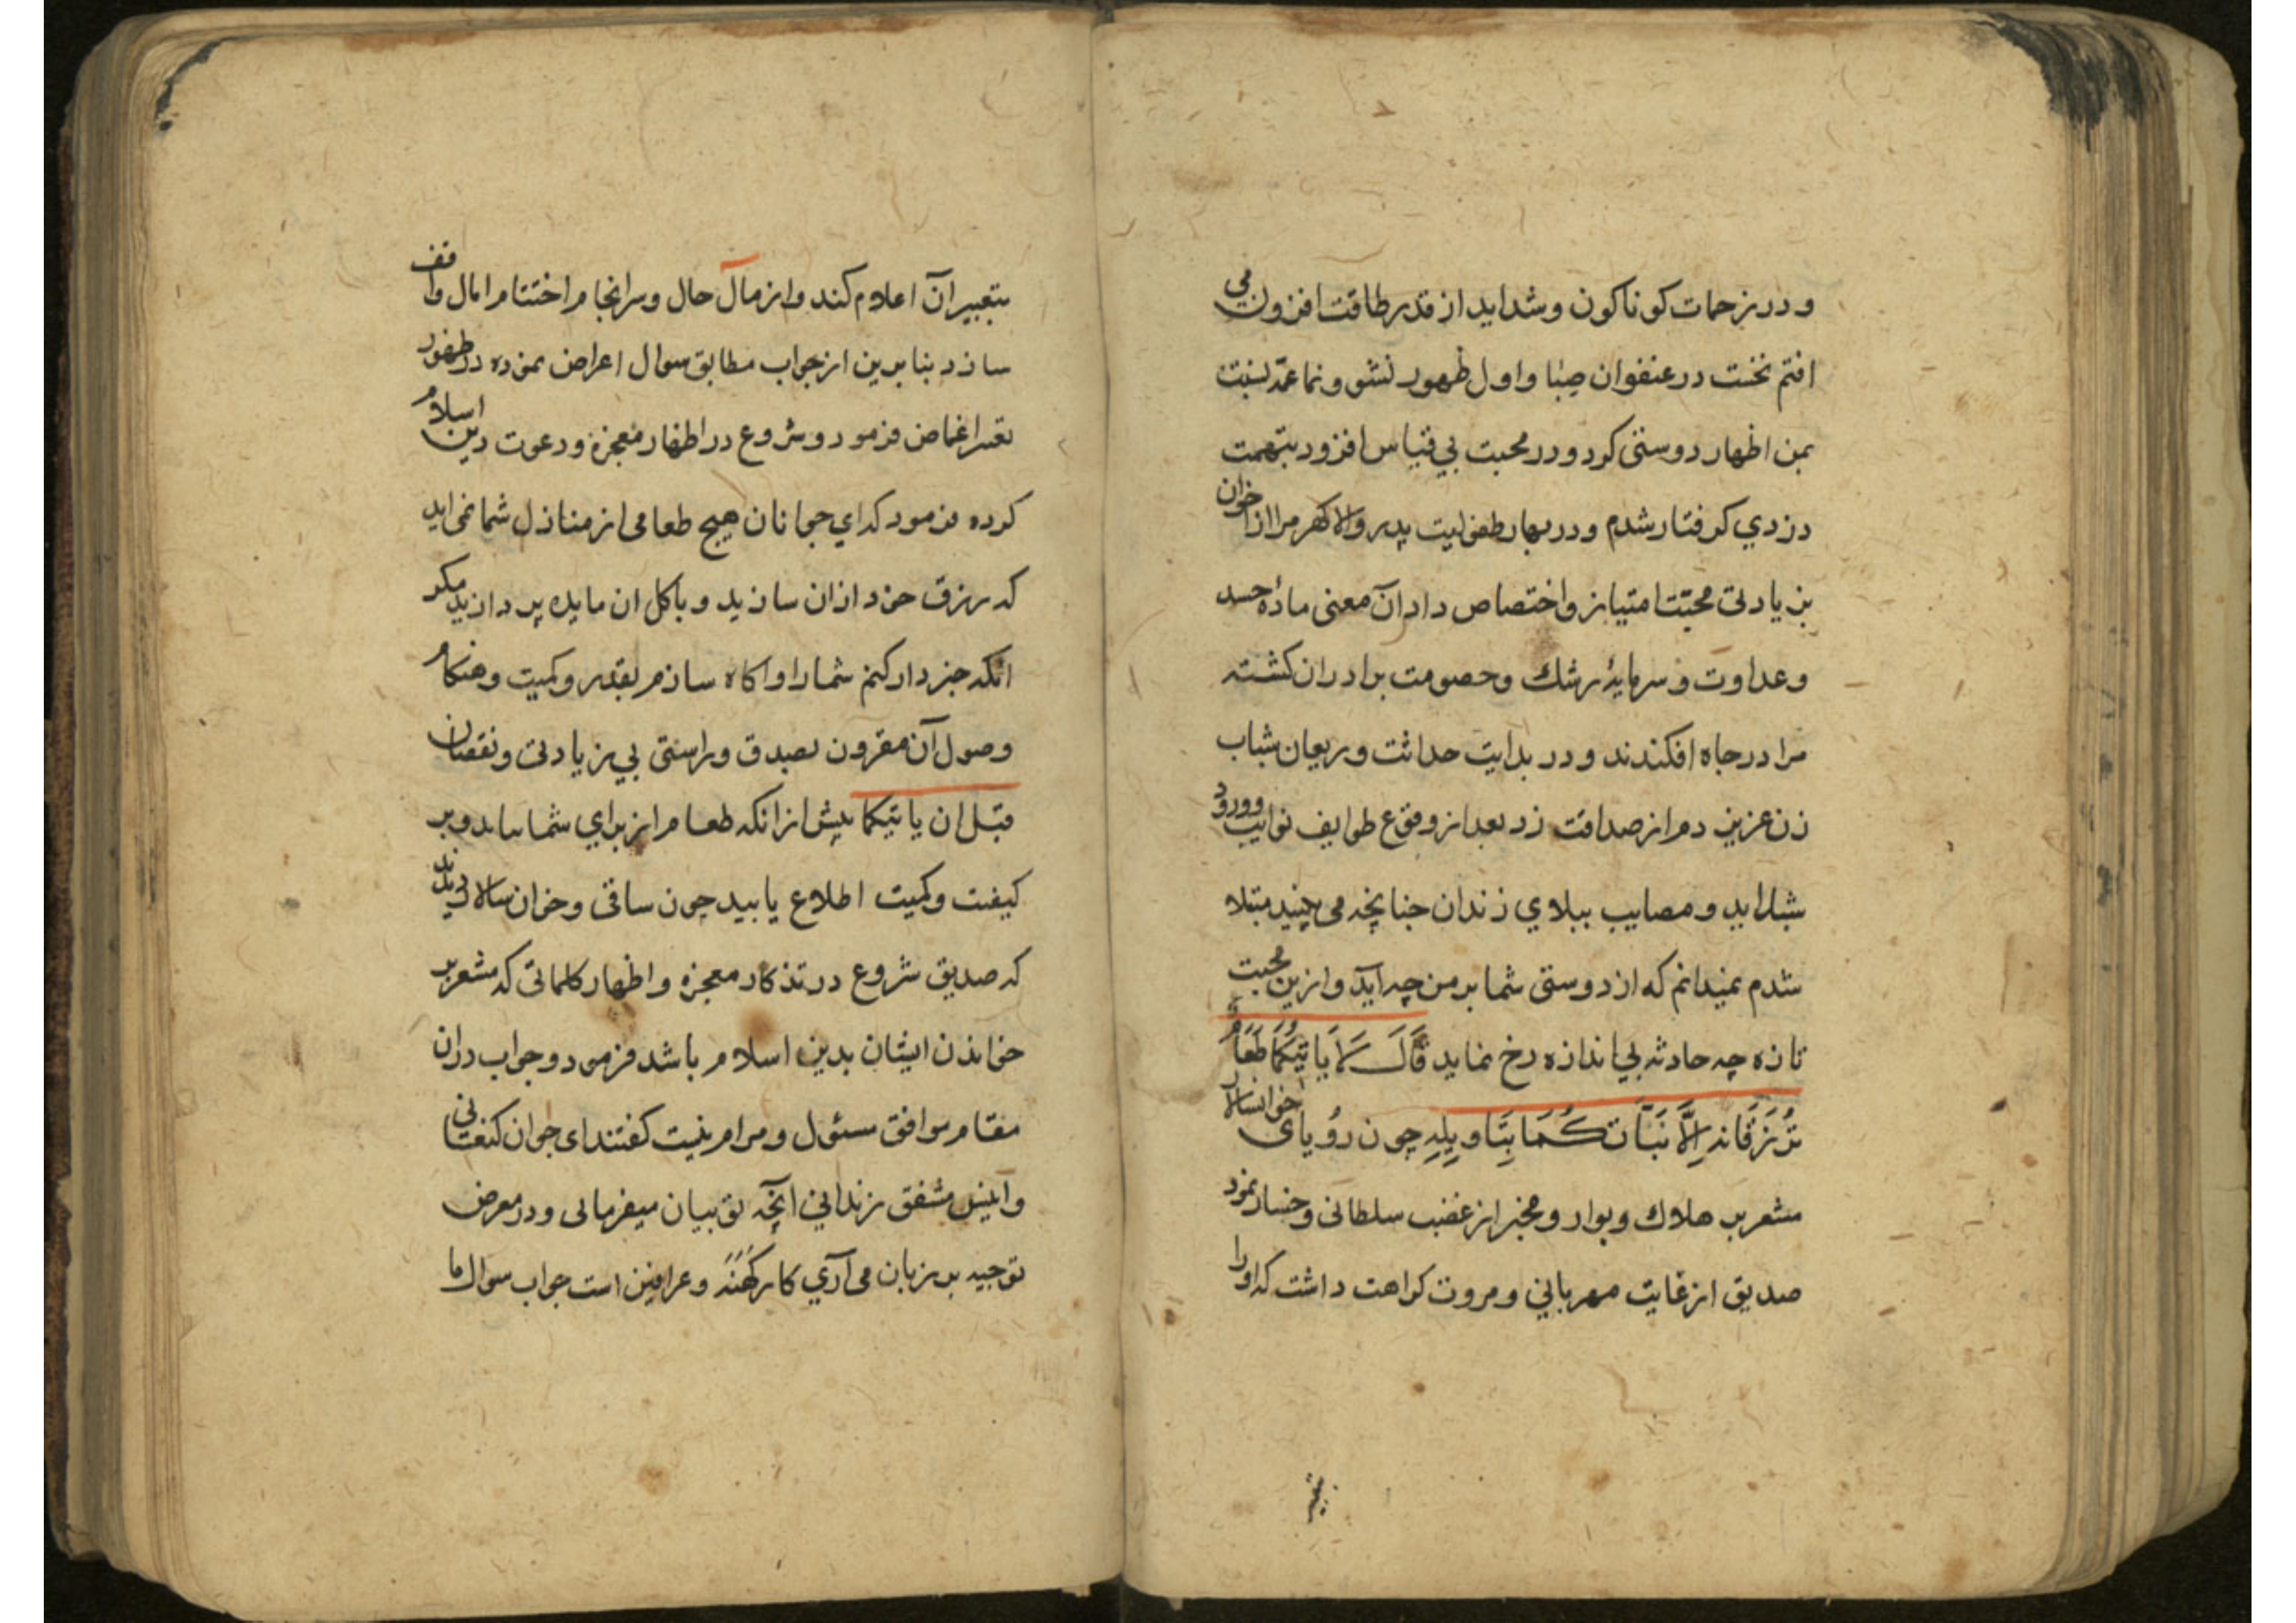 و در زحمات کوناکون و شداید از قدر طاقت افزون می
افتم نخست در عنفوان صِبٰا و اول ظهور نشو و نما عمّه نسبت
بمن اظهار دوستی کرد و در محبت بی قیاس افزود بتهمت
دزدی کرفتار شدم و در بهار طفولیت پدر والا کهر مرا از اخوان
بزیادتی محبّت امتیاز و اختصاص داد آن معنی مادۀ حسد
و عداوت و سرمایۀ رشك و خصومت برادران کشته
مرا در جاه افکندند و در بدایت حداثت و ریعان شباب
زن عزیز دم از صداقت زد بعد از وقوع طوایف نوایب و ورود
شداید و مصایب ببلاوی زندان جنانچه می بینید مبتلا
شدم نمیدانم که از دوستی شما بر من چه اید و ازین محبت
تازه چه حادثه بی اندازه رخ نماید قَالَ لَا یَاتِیکُمَا طَعَامٌ
تُرْزَقَانِهِ اِلَّا نَبَّاتُكُمَا بِتَاوِیلِهِ چون رُویای خوانسالار
مشعر بر هلاك و بوار و مخبر از غضب سلطانی و خسار نمود
صدیق از غایت مهربانی و مروت کراهت داشت که او را
بتعبیر آن اعلام کند و از مآل حال و سرانجام اختتام امال واقف
سازد بنا برین از جواب مطابق سوال اعراض نموده در ظهور
تعبیر اغماض فرمود و شروع در اظهار معجزه و دعوت دین اسلام
کرده فرمود که ای جوانان هیچ طعامی از منازل شما نمی اید
که رزق خود ازان سازید و باکل ان مایده پردازید مکر
انکه خبردار کنم شما را و اکاه سازم بقدر و کمیت و هنکام
وصول آن مقرون بصدق و راستی بی زیادتی و نقصان
قبل ان یاتیکما پیش از انکه طعام از برای شما بیاید و بر
کیفیت و کمیت اطلاع یابید چون ساقی و خوان سالار دیدند
که صدیق شروع در تذکار معجزه و اظهار کلماتی که مشعر بر
خواندن ایشان بدین اسلام باشد فرمود و جواب دران
مقام موافق مسئول و مرام نیست کفتند ای جوان کنعانی
و انیس مشفق زندانی انچه تو بیان میفرمائی و در معرض
توجیه بر زبان می آری کار کَهَنَه و عرافین است جواب سوال ما
بتعبیر